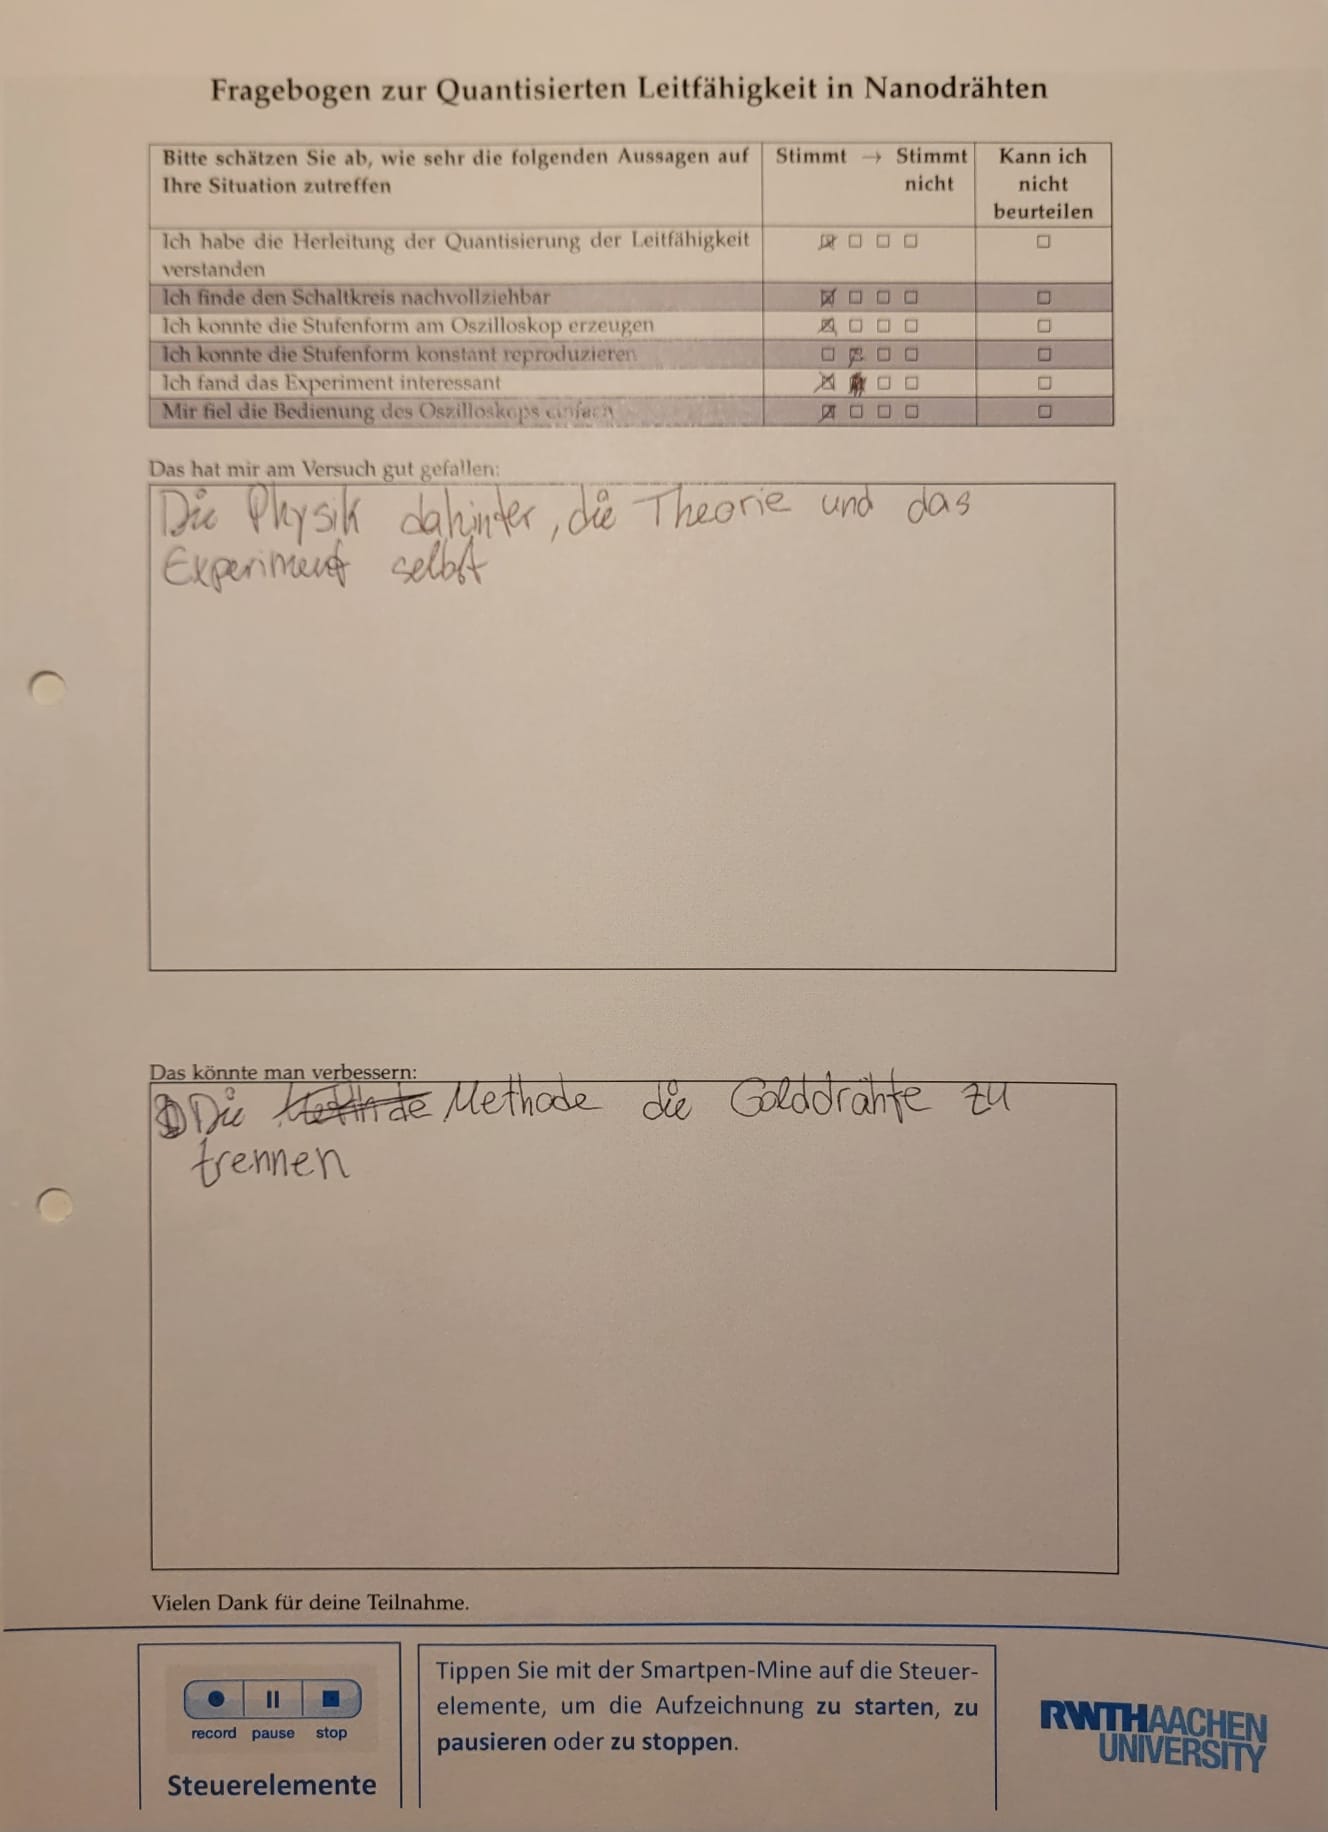 Fragebogen zur Quantisierten Leitfähigkeit in Nanodrähten
Bitte schätzen Sie ab, wie sehr die folgenden Aussagen auf
Ihre Situation zutreffen
Stimmt → Stimmt
nicht
Kann ich
nicht
beurteilen
Ich habe die Herleitung der Quantisierung der Leitfähigkeit
verstanden
☒ ☐ ☐ ☐ ☐
Ich finde den Schaltkreis nachvollziehbar ☒ ☐ ☐ ☐ ☐
Ich konnte die Stufenform am Oszilloskop erzeugen ☒ ☐ ☐ ☐ ☐
Ich konnte die Stufenform konstant reproduzieren ☐ ☒ ☐ ☐ ☐
Ich fand das Experiment interessant ☒ ■ ☐ ☐ ☐
Mir fiel die Bedienung des Oszilloskops einfach ☒ ☐ ☐ ☐ ☐
Das hat mir am Versuch gut gefallen:
Die Physik dahinter, die Theorie und das
Experiment selbst
Das könnte man verbessern:
Die Methode die Golddrähte zu
trennen
Vielen Dank für deine Teilnahme.
record pause stop
Steuerelemente
Tippen Sie mit der Smartpen-Mine auf die Steuer-
elemente, um die Aufzeichnung zu starten, zu
pausieren oder zu stoppen.
RWTHAACHEN
UNIVERSITY